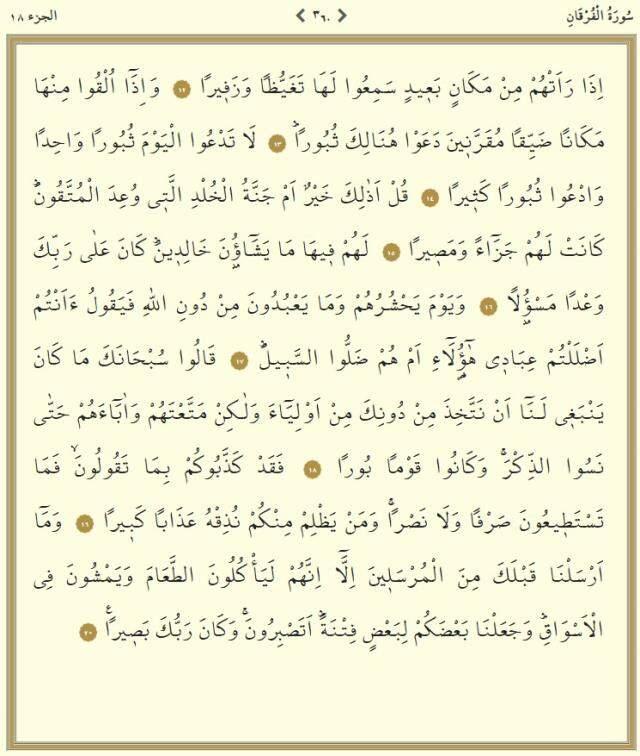 سُورَةُ الْفُرْقَانِ ٣٦٠ الجزء ١٨
اِذَا رَاَتْهُمْ مِنْ مَكَانٍ بَعٖيدٍ سَمِعُوا لَهَا تَغَيُّظًا وَزَفٖيرًا ١٢ وَاِذَٓا اُلْقُوا مِنْهَا
مَكَانًا ضَيِّقًا مُقَرَّنٖينَ دَعَوْا هُنَالِكَ ثُبُورًاؕ ١٣ لَا تَدْعُوا الْيَوْمَ ثُبُورًا وَاحِدًا
وَادْعُوا ثُبُورًا كَثٖيرًا ١٤ قُلْ اَذٰلِكَ خَيْرٌ اَمْ جَنَّةُ الْخُلْدِ الَّتٖى وُعِدَ الْمُتَّقُونَؕ
كَانَتْ لَهُمْ جَزَٓاءً وَمَصٖيرًا ١٥ لَهُمْ فٖيهَا مَا يَشَٓاؤُ۫نَ خَالِدٖينَؕ كَانَ عَلٰى رَبِّكَ
وَعْدًا مَسْؤُ۫لًا ١٦ وَيَوْمَ يَحْشُرُهُمْ وَمَا يَعْبُدُونَ مِنْ دُونِ اللّٰهِ فَيَقُولُ ءَاَنْتُمْ
اَضْلَلْتُمْ عِبَادٖى هٰٓؤُ۬لَٓاءِ اَمْ هُمْ ضَلُّوا السَّبٖيلَؕ ١٧ قَالُوا سُبْحَانَكَ مَا كَانَ
يَنْبَغٖى لَنَٓا اَنْ نَتَّخِذَ مِنْ دُونِكَ مِنْ اَوْلِيَٓاءَ وَلٰكِنْ مَتَّعْتَهُمْ وَاٰبَٓاءَهُمْ حَتّٰى
نَسُوا الذِّكْرَۚ وَكَانُوا قَوْمًا بُورًا ١٨ فَقَدْ كَذَّبُوكُمْ بِمَا تَقُولُونَۙ فَمَا
تَسْتَطٖيعُونَ صَرْفًا وَلَا نَصْرًاۚ وَمَنْ يَظْلِمْ مِنْكُمْ نُذِقْهُ عَذَابًا كَبٖيرًا ١٩ وَمَٓا
اَرْسَلْنَا قَبْلَكَ مِنَ الْمُرْسَلٖينَ اِلَّٓا اِنَّهُمْ لَيَاْكُلُونَ الطَّعَامَ وَيَمْشُونَ فِى
الْاَسْوَاقِؕ وَجَعَلْنَا بَعْضَكُمْ لِبَعْضٍ فِتْنَةًؕ اَتَصْبِرُونَۚ وَكَانَ رَبُّكَ بَصٖيرًاࣖ ٢٠